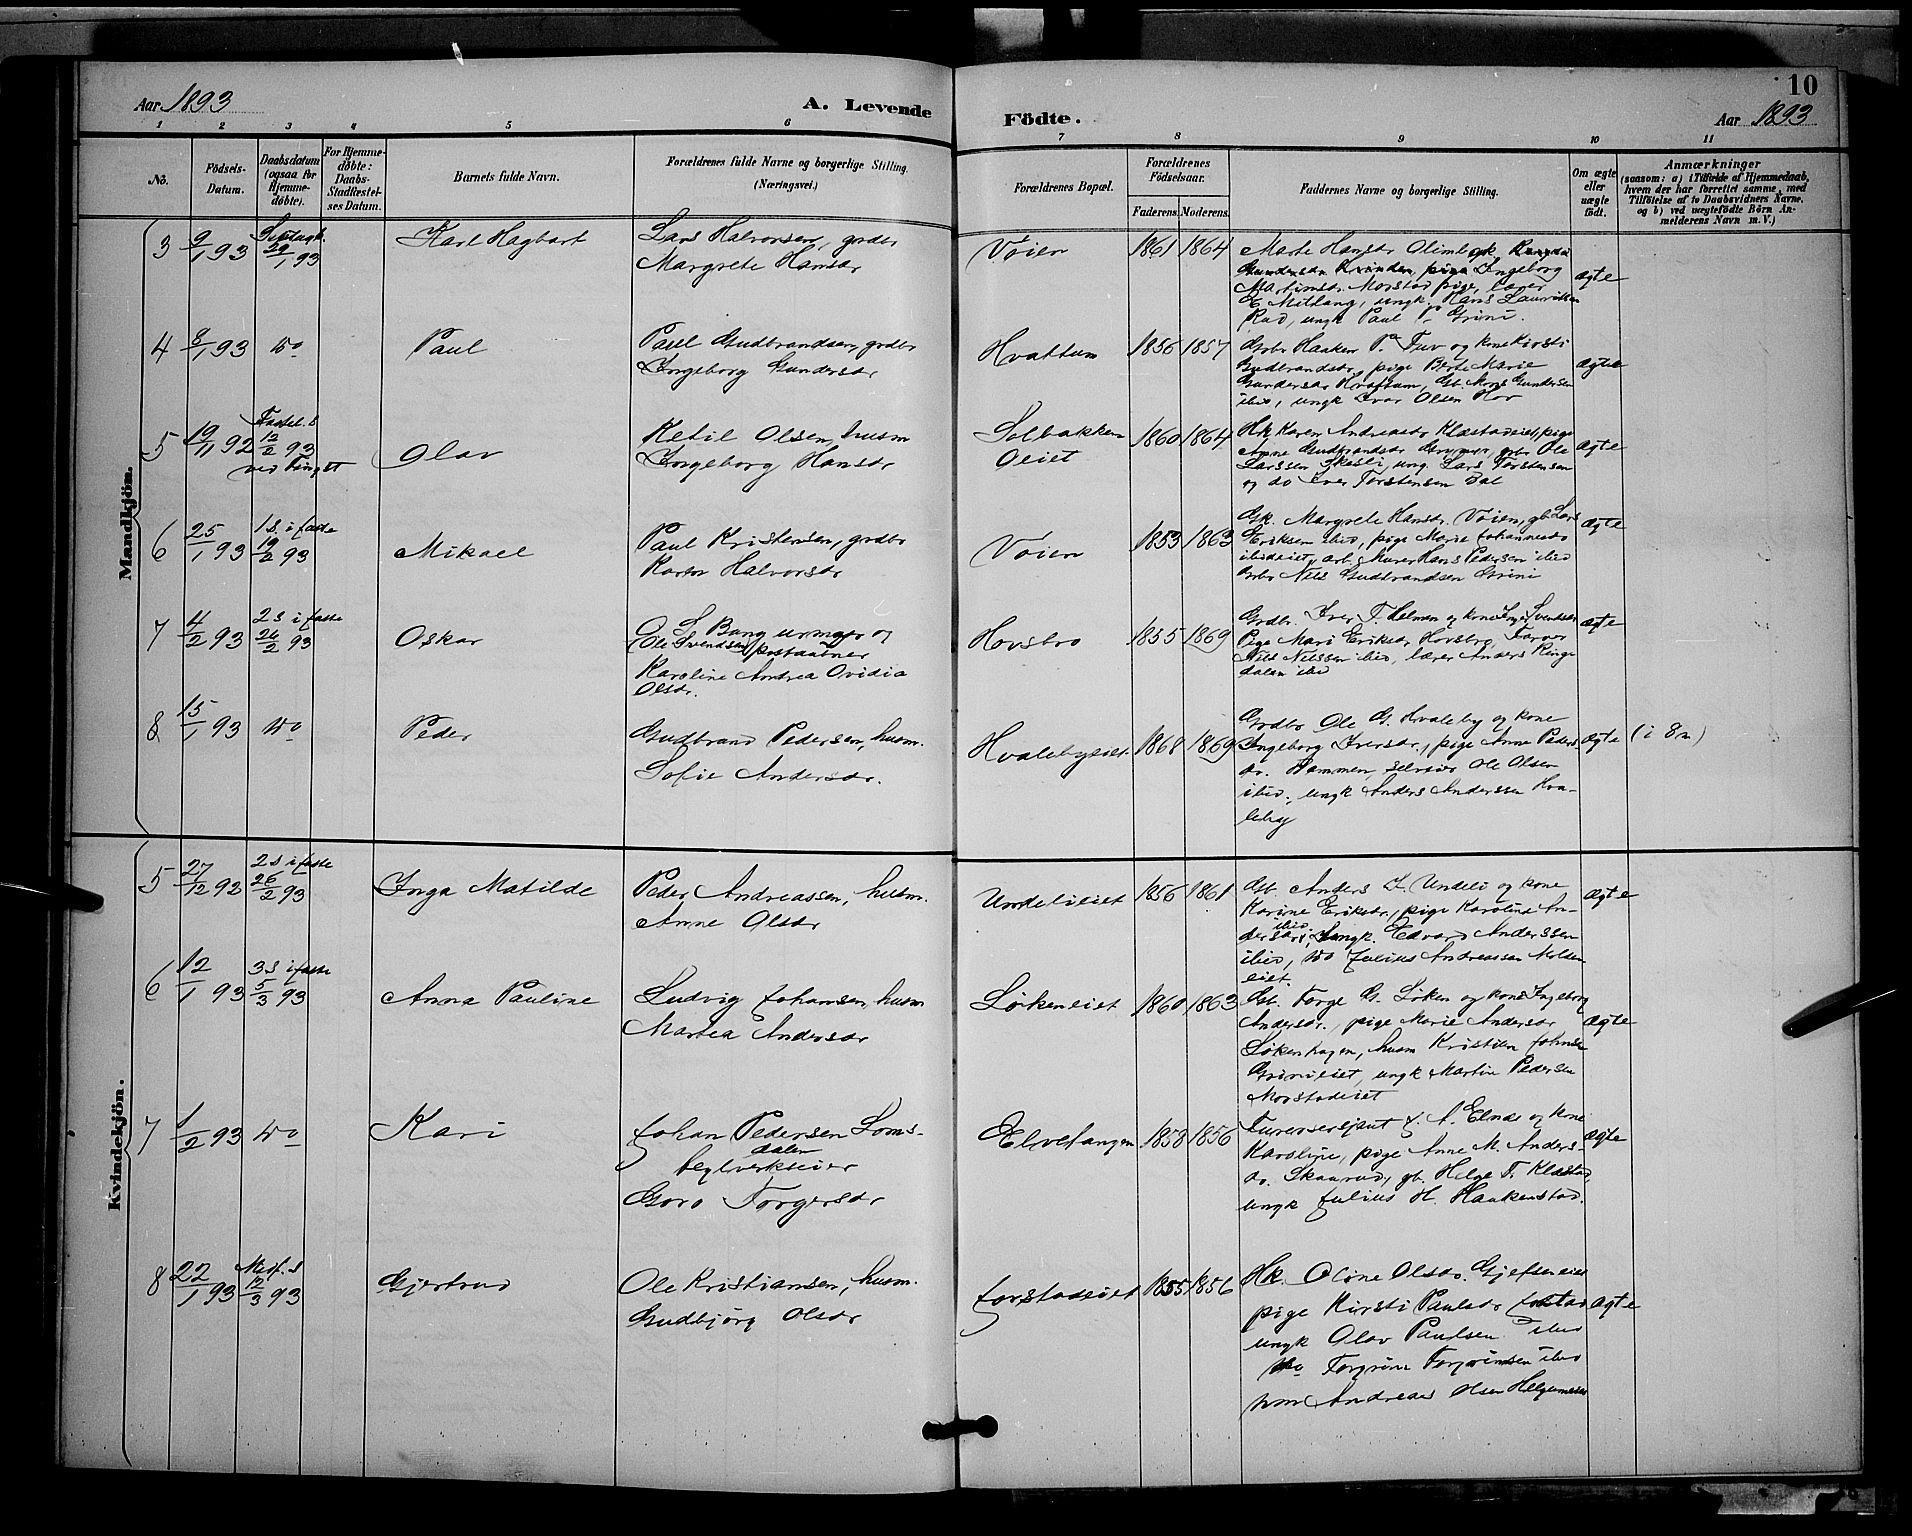 Aar 1893
A. Levende
Födte.
10
Aar 1893
1 2 3 4 5 6 7 8 9 10 11
No.
Födsels-
Datum.
Daabsdatum
(ogsaa for
Hjemme-
döbte).
For Hjemme-
döbte:
Daabs-
Stadfæstel-
ses Datum.
Barnets fulde Navn.
Forældrenes fulde Navne og borgerlige Stilling.
(Næringsvei.)
Forældrenes Bopæl.
Forældrenes
Födselsaar.
Faderens. Moderens.
Faddernes Navne og borgerlige Stilling.
Om ægte
eller
uægte
født.
Anmærkninger
(saasom: a) i Tilfælde af Hjemmedaab,
hvem der har forrettet samme, med
Tilföielse af to Daabsvidners Navne,
og b) ved uægtefødte Börn An-
melderens Navn m. V.)
Mandkjön.
3 9/1 93 29/1 93 Karl Hagbart
Lars Halvorsen, grdbr
Margrete Hansdr
Vøien 1861 1864
Marte Hansdr
Ingeborg
Martinsdr. Morstad pige, lærer
ungk. Hans Lauritsen
Rud, ungk Paul P. Grini.
ægte
4 8/1 93 do Paul
Paul Gudbrandsen, grdbr
Ingeborg Gundersdr
Hvattum 1856 1857
Grbr Haaken P. Tuv og kone Kirsti
Gudbrandsdr, pige Berte Marie
Gundersdr Hvattum, Gb. Mons Gundersen
ibid, ungk Ivar Olsen Hov
ægte
5 19/11 92 Fastel. s
12/2 93
ved Tinget
Olav
Ketil Olsen, husm
Ingeborg Hansdr
Solbakken
Oeiet
1860 1864
Hk Karen Andreasdr Klæstadeiet, pige
Anne Gudbrandsdr grbr Ole
Larssen ung. Lars Torstensen
og do Iver Torstensen Bal
ægte
6 25/1 93 1 s i faste
19/2 93
Mikael
Paul Kristensen, grdbr
Karen Halvorsdr
Vøien 1853 1863
Gk. Margrete Hansdr. Vøien, gb Lars
Eriksen ibid, pige Marie Johannesdr
ibideiet, arb. Murer Hans Pedersen ibid
Grbr Nils Gudbrandsen Grini
ægte
7 4/2 93 2 s i faste
26/2 93
Oskar
O S Bang urmgr og
(Ole Svendsen) postaabner
Karoline Andrea Ovidia
Olsdr.
Hovsbro 1855 1869
Grdbr. Iver T. Helman og kone Inger Svendsdr
Pige Mari Eriksdr. Hovsbro, Farver
Nils Nilssen ibid, lærer Anders Ringe
dalen ibid
ægte
8 15/1 93 do Peder
Gudbrand Pedersen, husm.
Sofie Andersdr.
Hvalebyeiet 1868 1869
Grdbr Ole G. Hvaleby og kone
Ingeborg Iversdr., pige Anne Peders-
dr. Rammen, selveier Ole Olsen
ibid., ungk Anders Anderssen Hva-
leby
ægte (i 8 m)
Kvindekjön.
5 27/12 92 2 s i faste
26/2 93
Inga Matilde
Peder Andreassen, husm.
Anne Olsdr
Undelieiet 1856 1861
Gb. Anders I. Undeli og kone
Karine Eriksdr., pige Karoline An-
dersdr ibid, ungk. Edvard Anderssen
ibid, do Julius Andreassen
eiet.
ægte
6 12/1 93 3 s i faste
5/3 93
Anna Pauline
Ludvig Johansen, husm
Martea Andersdr
Løkeneiet 1860 1863
Gb. Torge G. Løken og kone Ingeborg
Andersdr., pige Marie Andersdr
Løkenhagen, husm Kristian Johnsen
Grinieiet, ungk Martin Pedersen
Morstadeiet
ægte
7 1/2 93 do Kari
Johan Pedersen Loms-
dalen
teglverkseier
Goro Torgersdr
Elvetangen 1858 1856
Furersersjant J. A. Elnæs og kone
Karoline, pige Anne M. Anders-
dr. Skaarud, gb. Helge T. Klæstad,
ungk Julius H. Haakenstad.
ægte
8 22/1 93 Midf. s
12/3 93
Gjertrud
Ole Kristiansen, husm.
Gudbjørg Olsdr
Jorstadeiet 1855 1856
Hk. Oline Olsdr. Gjefseneiet
pige Kirsti Paulsdr Jorstad
ungk Olav Paulsen ibid
do Torgrim Torgrimsen ibid
hm Andreas Olsen
ægte